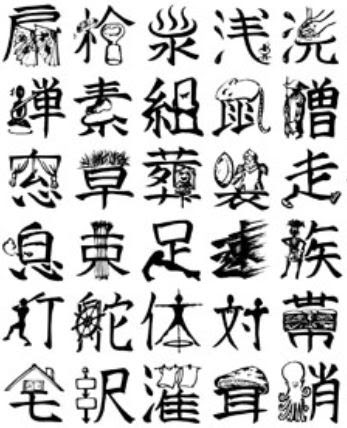 扇栓泉浅洗
禅素組鼠僧
窓草葬装走
息束足速族
打舵体対帯
宅濯茸蛸